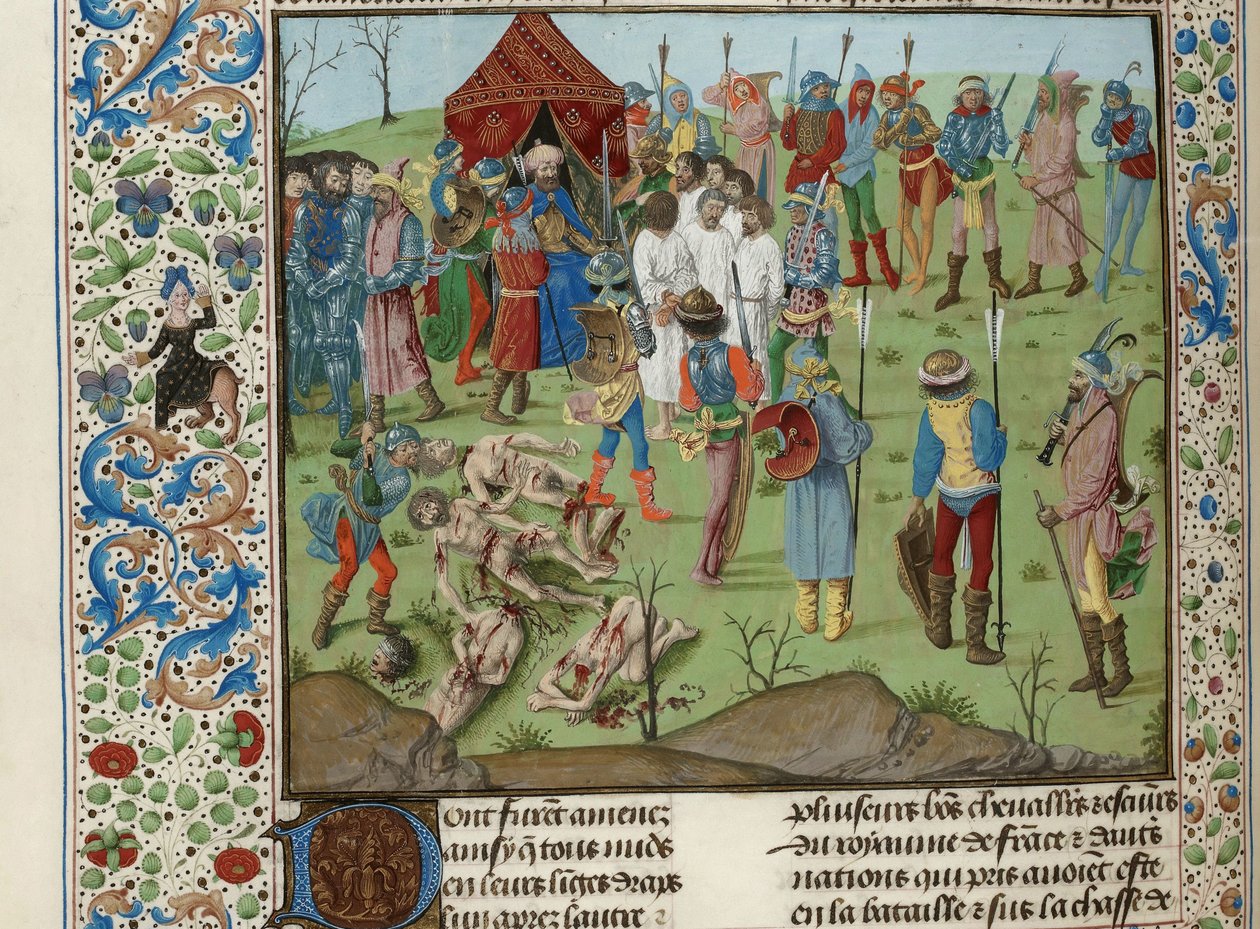 Dont furẽt amenez
ainsy q̃ tous nudz
en leurs lĩges draps
lun aprez lautre ⁊
pluiseurs bõs cheualiers ⁊ escuiers
du royaume de frãce ⁊ dautrs
nations qui pris auoiẽt este
en la bataille ⁊ sus la chasse de